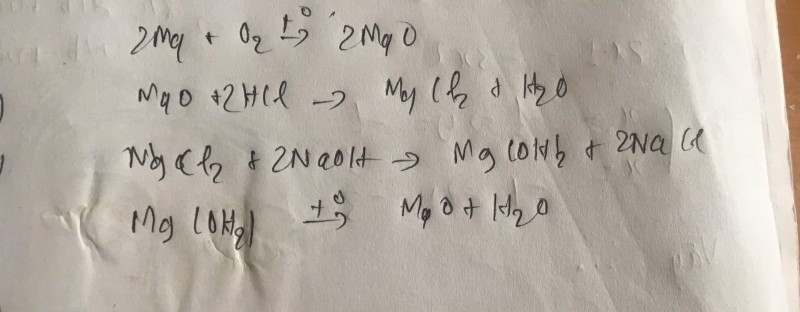 2Mg + O₂ t⁰→ 2MgO
MgO + 2HCl → MgCl₂ + H₂O
MgCl₂ + 2NaOH → Mg(OH)₂ + 2NaCl
Mg(OH₂) t⁰→ MgO + H₂O